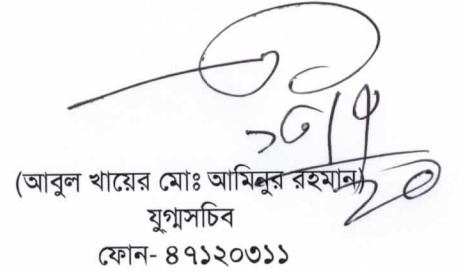 (আবুল খায়ের মোঃ আমিনুর রহমান)
যুগ্মসচিব
ফোন- ৪৭১২০৩১১